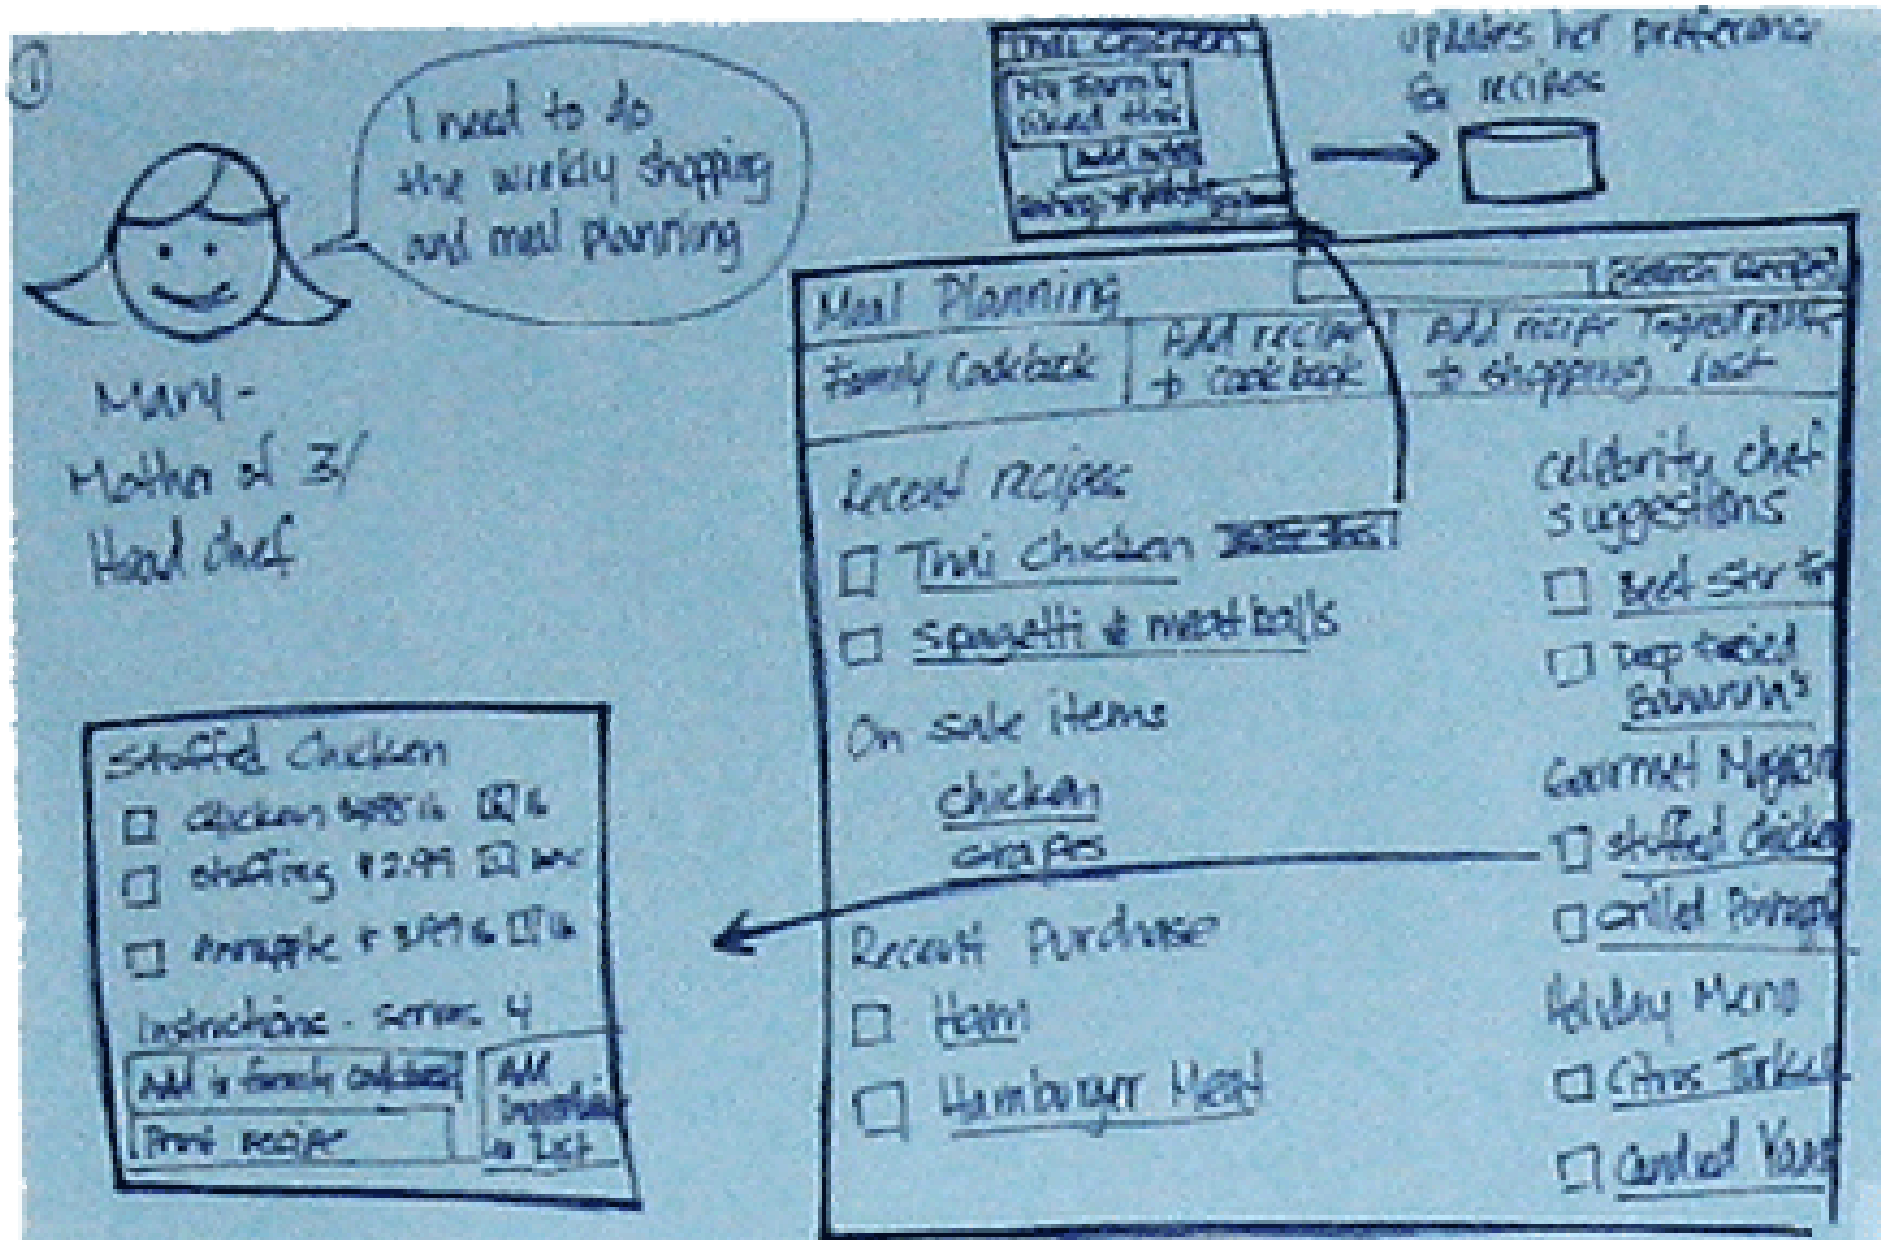 1
I need to do
the weekly shopping
and meal planning
Mary-
Mother of 3/
Head chef
Thai Chicken
My family
liked this
Add notes
updates her preference
for recipes
Meal Planning
Search Recipes
Family Cookbook
Add recipe
to cookbook
Add recipe Ingredients
to shopping list
Recent recipes
Thai Chicken
Spagetti & meatballs
On sale items
chicken
grapes
Recent Purchase
Ham
Hamburger Meat
Celebrity chef
suggestions
Beef Stir
Deep fried
Bananna's
Gourmet
Stuffed Chicken
Grilled
Holiday Menu
Citrus
Candied
Stuffed Chicken
Chicken
Stuffing $2.99
Pineapple
Instructions - serves 4
Add to family cookbook
Print recipe
Add
Ingredients
to List